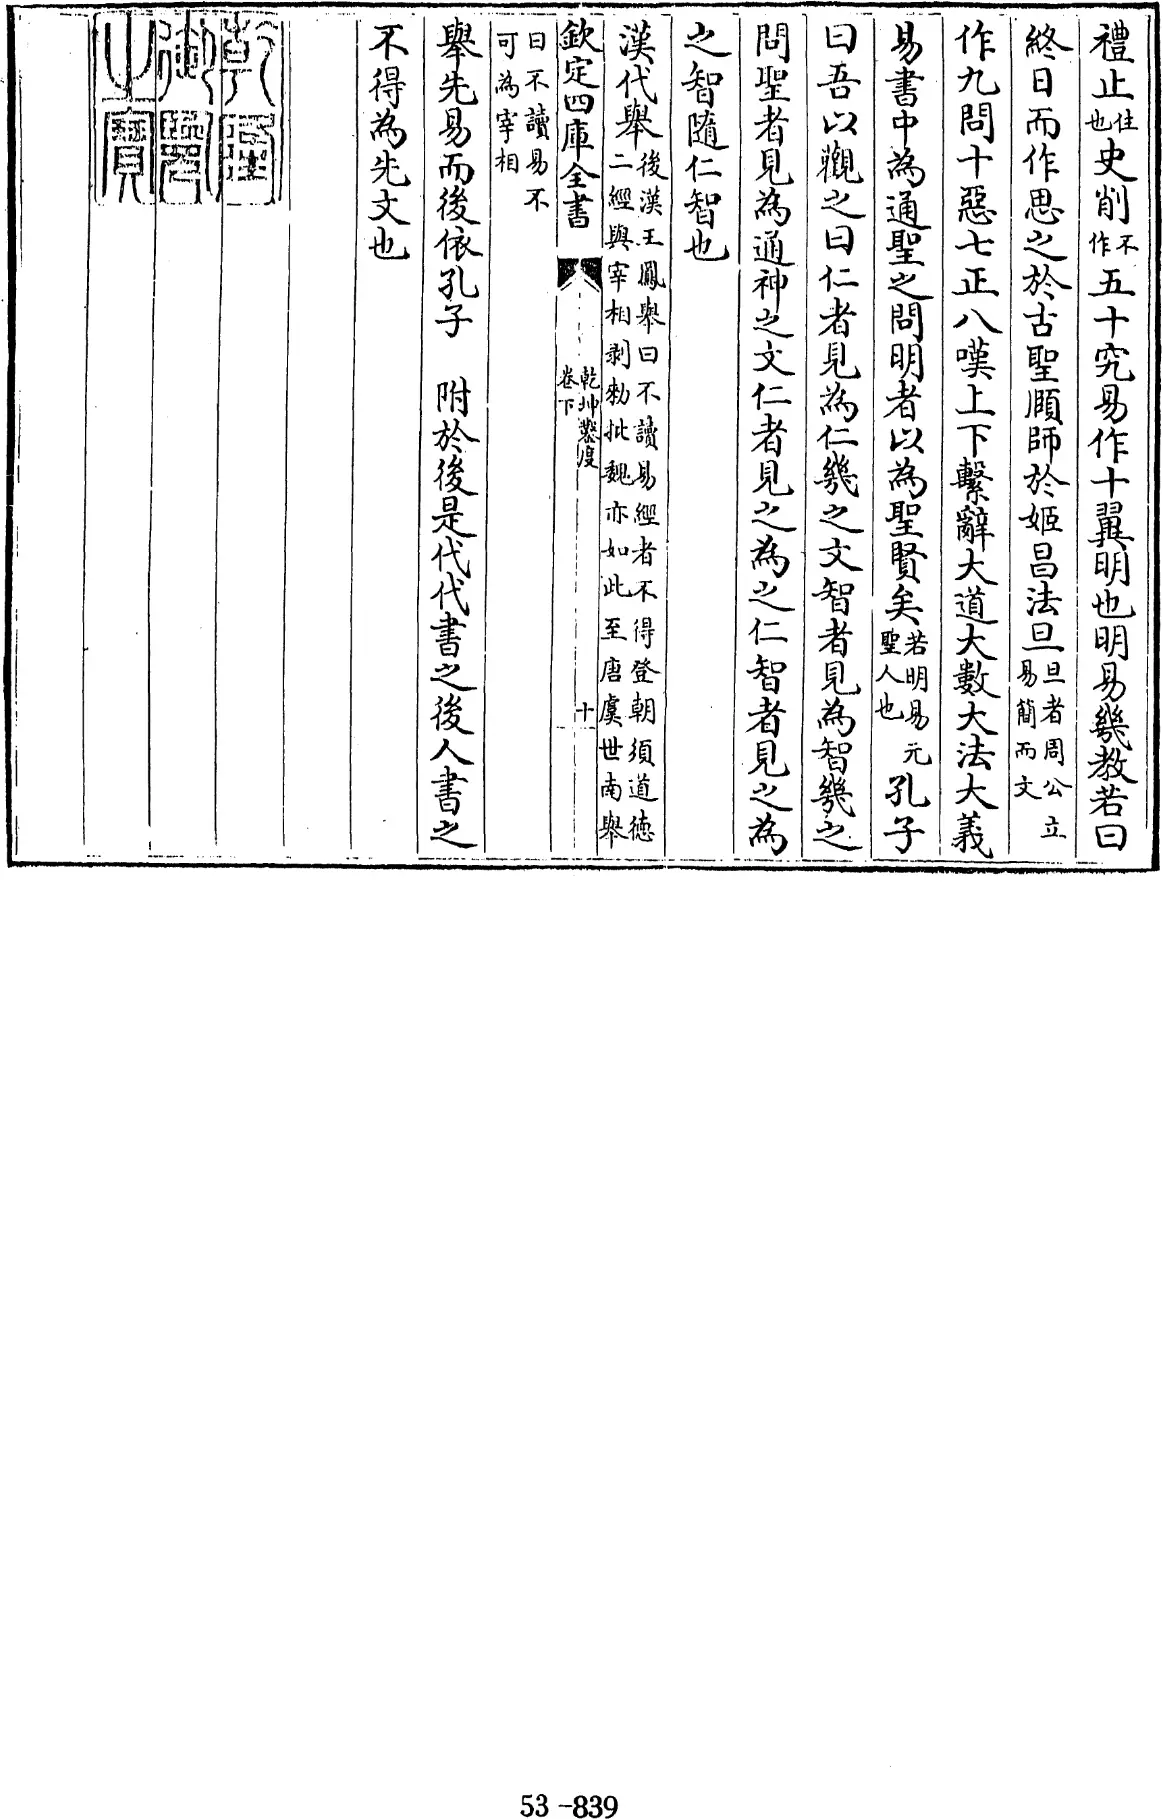 禮止住也史削不作五十究易作十翼明也明易幾教若曰
終日而作思之於古聖頤師於姬昌法旦旦者周公立易簡而文
作九問十惡七正八嘆上下繫辭大道大數大法大義
易書中為通聖之問明者以為聖賢矣若明易元聖人也孔子
曰吾以觀之曰仁者見為仁幾之文智者見為智幾之
問聖者見為通神之文仁者見之為之仁智者見之為
之智隨仁智也
漢代舉後漢王鳳舉曰不讀易經者不得登朝須道德二經與宰相剥勑批魏亦如此至唐虞世南舉
欽定四庫全書 乾坤鑿度卷下 十
曰不讀易不可為宰相
舉先易而後依孔子 附於後是代代書之後人書之
不得為先文也
乾隆御覽之寶
53-839